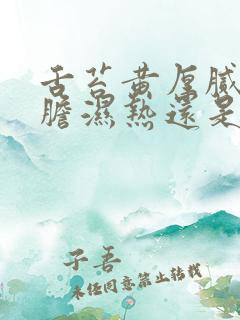 舌苔黄厚腻
膽濕熱還是
子吾
未经同意禁止转载